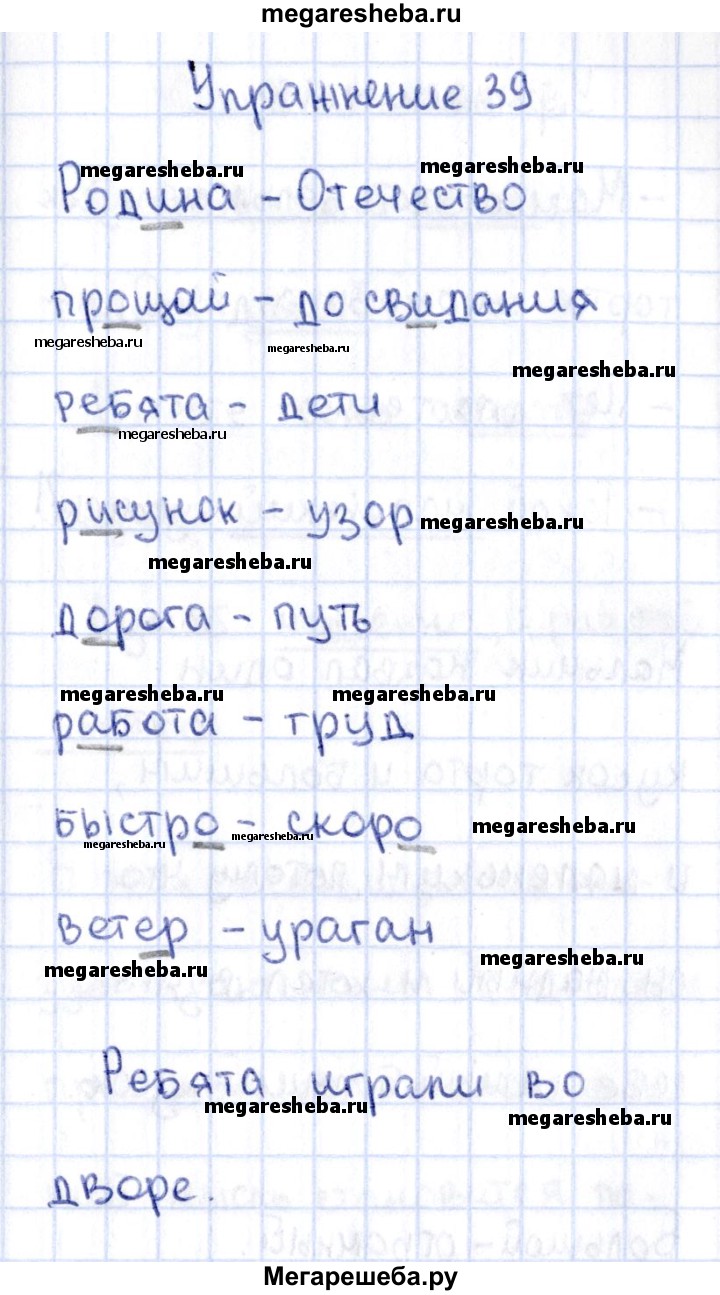 megaresheba.ru
Упражнение 39
megaresheba.ru megaresheba.ru
Родина – Отечество
прощай – до свидания
megaresheba.ru megaresheba.ru
megaresheba.ru
ребята – дети
megaresheba.ru
рисунок – узор megaresheba.ru
megaresheba.ru
дорога – путь
megaresheba.ru megaresheba.ru
работа – труд
быстро – скоро megaresheba.ru
megaresheba.ru megaresheba.ru
ветер – ураган
megaresheba.ru megaresheba.ru
Ребята играли во
megaresheba.ru megaresheba.ru
дворе.
Мегарешеба.ру